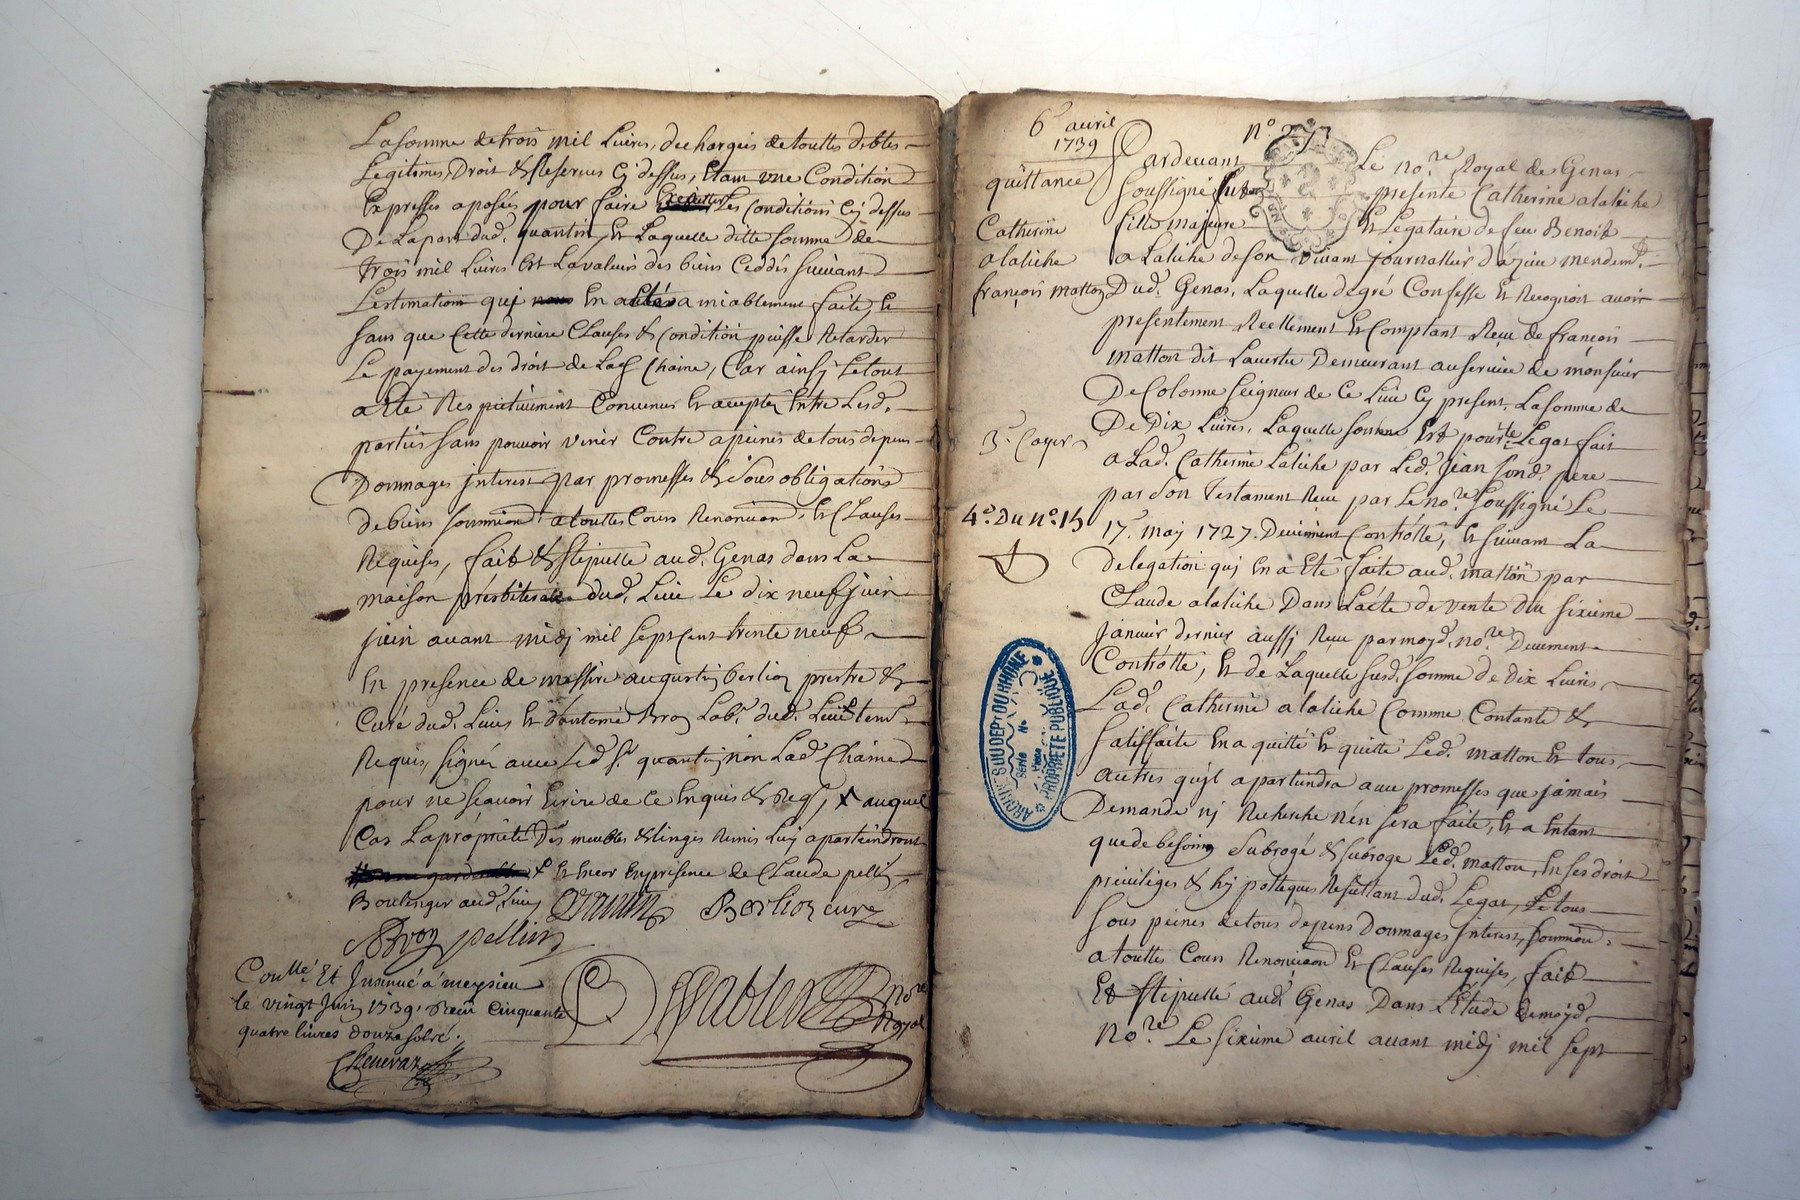 La somme de trois mil Livres, decharges de touttes debtes
Legitimes, Droit & Reserves Cy dessus, Etant une Condition
Expresses aposées pour faire Les Conditions Cy dessus
De La part dud. quantin, Et Laquelle ditte somme de
trois mil Livres Est La valeurs des biens Ceddés suivant
L'estimation quj En a été amiablement faite, Et
sans que Cette derniere Clauses & Condition puisse Retarder
Le payement des droit de Lad. Chaine, Car ainsj Le tout
a Eté Respectivement Convenus Et accepté Entre Lesd.
parties sans pouvoir venir Contre a peines de tous depens
Dommages interest par promesses & sous obligations
de biens soumiions a touttes Cours Renonciaon. Et Clauses
Requises, fait & stipullé aud. Genas dans La
maison présbiteralle dud. Lieu Le dix neuf juin
juin avant midj mil sept Cent trente neuf
En presence de messire augustin berlioz prestre &
Curé dud. Lieu Et d'antoine Broz Lab. dud. Lieu tem.
Requis, signés avec Led. Sr. quantin non Lad. Chaine
pour ne sçavoir Ecrire de ce Enquis & Reqs, x auquel
Cas La proprieté Des meubles & linges Remis Luj apartiendront
x Et Encor En presence de Claude pellin
Boulenger aud. Lieu Quantin Berlioz curé
Broz pellin
Conllé Et Insinué á meysieu
le vingt Juin 1739, Receu Cinquante
quatre livres douze sols.
Chenevaz
Sablier nore Royal
6e avril
1739
No. 273
quittance
Catherine
alatiche
françois matton
3e. Cayer
4e. Du no. 15
Pardevant Le nore. Royal de Genas
soussigné fut presente Catherine alatiche
fille majeure Et Legataire de feu Benoit
alatiche de son vivant journallier d'azieu mendemt.
Dud. Genas, Laquelle de gré Confesse Et Recognoit avoir
presentement Reellement Et Comptant Receu de françois
matton dit Lavertu Demeurant au service de monsieur
De Colonne seigneur de Ce Lieu Cy present, La somme de
De Dix Livres, Laquelle somme Est pour le Legat fait
a Lad. Catherine Latiche par Led. Jean sond. pere
par son Testament Receu par Le nore. soussigné Le
17e. may 1727. Deuement Controllé, Et suivant La
delegation quj En a Eté faite aud. matton par
Claude alatiche Dans L'acte de vente du sixieme
janvier dernier aussj Receu par moyd. nore. Deuement
Controllé, Et de Laquelle susd. somme de Dix Livres
Lad. Catherine alatiche Comme Contante &
satisfaite En a quitté Et quitte Led. matton Et tous
autres qu'jl apartiendra avec promesses que jamais
Demande nj Recherche n'en sera faite, Et a Entant
que de besoing subrogé & subroge Led. matton, En ses droit
privileges & hypotteques Resultant dud. Legat, Le tous
sous peines de tous depens Dommages interest, soumiôn.
a touttes Cours Renonciaon Et Clauses Requises, fait
Et stipullé aud. Genas Dans L'Etude de moyd.
nore. Le sixieme avril avant midj mil sept
ARCHIVES DU DEPT DU RHÔNE
PROPRIÉTÉ PUBLIQUE
Série No